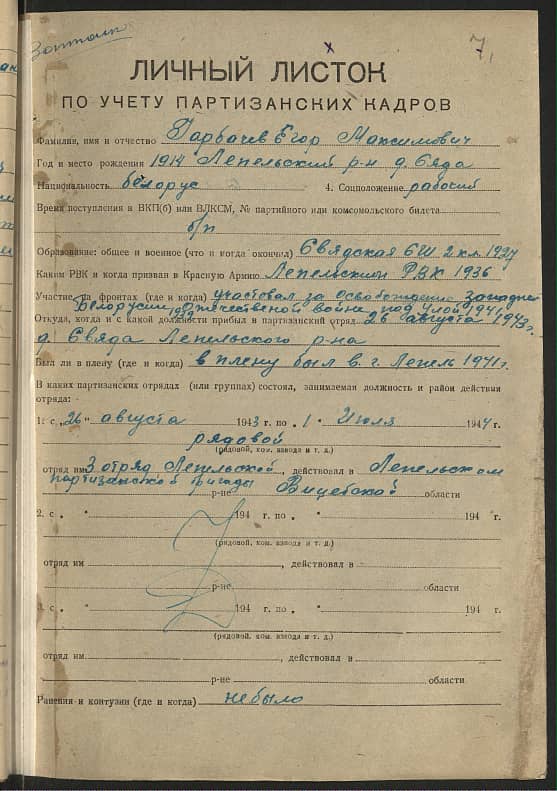 7.
ЛИЧНЫЙ ЛИСТОК
ПО УЧЕТУ ПАРТИЗАНСКИХ КАДРОВ
Фамилия, имя и отчество Гарбачев Егор Максимович
Год и место рождения 1914 Лепельский р-н д. Свяда
Национальность белорус 4. Соцположение рабочий
Время поступления в ВКП(б) или ВЛКСМ, № партийного или комсомольского билета
б/п
Образование: общее и военное (что и когда окончил) Свядская СШ 2 кл. 1927
Каким РВК и когда призван в Красную Армию Лепельским РВК 1936
Участие на фронтах (где и когда) участвовал за освобождение западной
Белорусии 1939 Отечественой войне под 1941
Откуда, когда и с какой должности прибыл в партизанский отряд 26 августа 1943 г.
д. Свяда Лепельского р-на
Был ли в плену (где и когда) в плену был в г. Лепель 1941 г.
В каких партизанских отрядах (или группах) состоял, занимаемая должность и район действия
отряда:
1. с „26" августа 1943 г. по „1" Июля 1944 г.
рядовой
(рядовой, ком. взвода и т. д.)
отряд им 3 отряд Лепельской, действовал в Лепельском
партизанской бригады р-не Витебской области
2. с „ " 194 г. по „ " 194 г.
(рядовой, ком. взвода и т. д.)
отряд им , действовал в
р-не области
3. с „ " 194 г. по „ " 194 г.
(рядовой, ком. взвода и т. д.)
отряд им , действовал в
р-не области
Ранения и контузии (где и когда) небыло